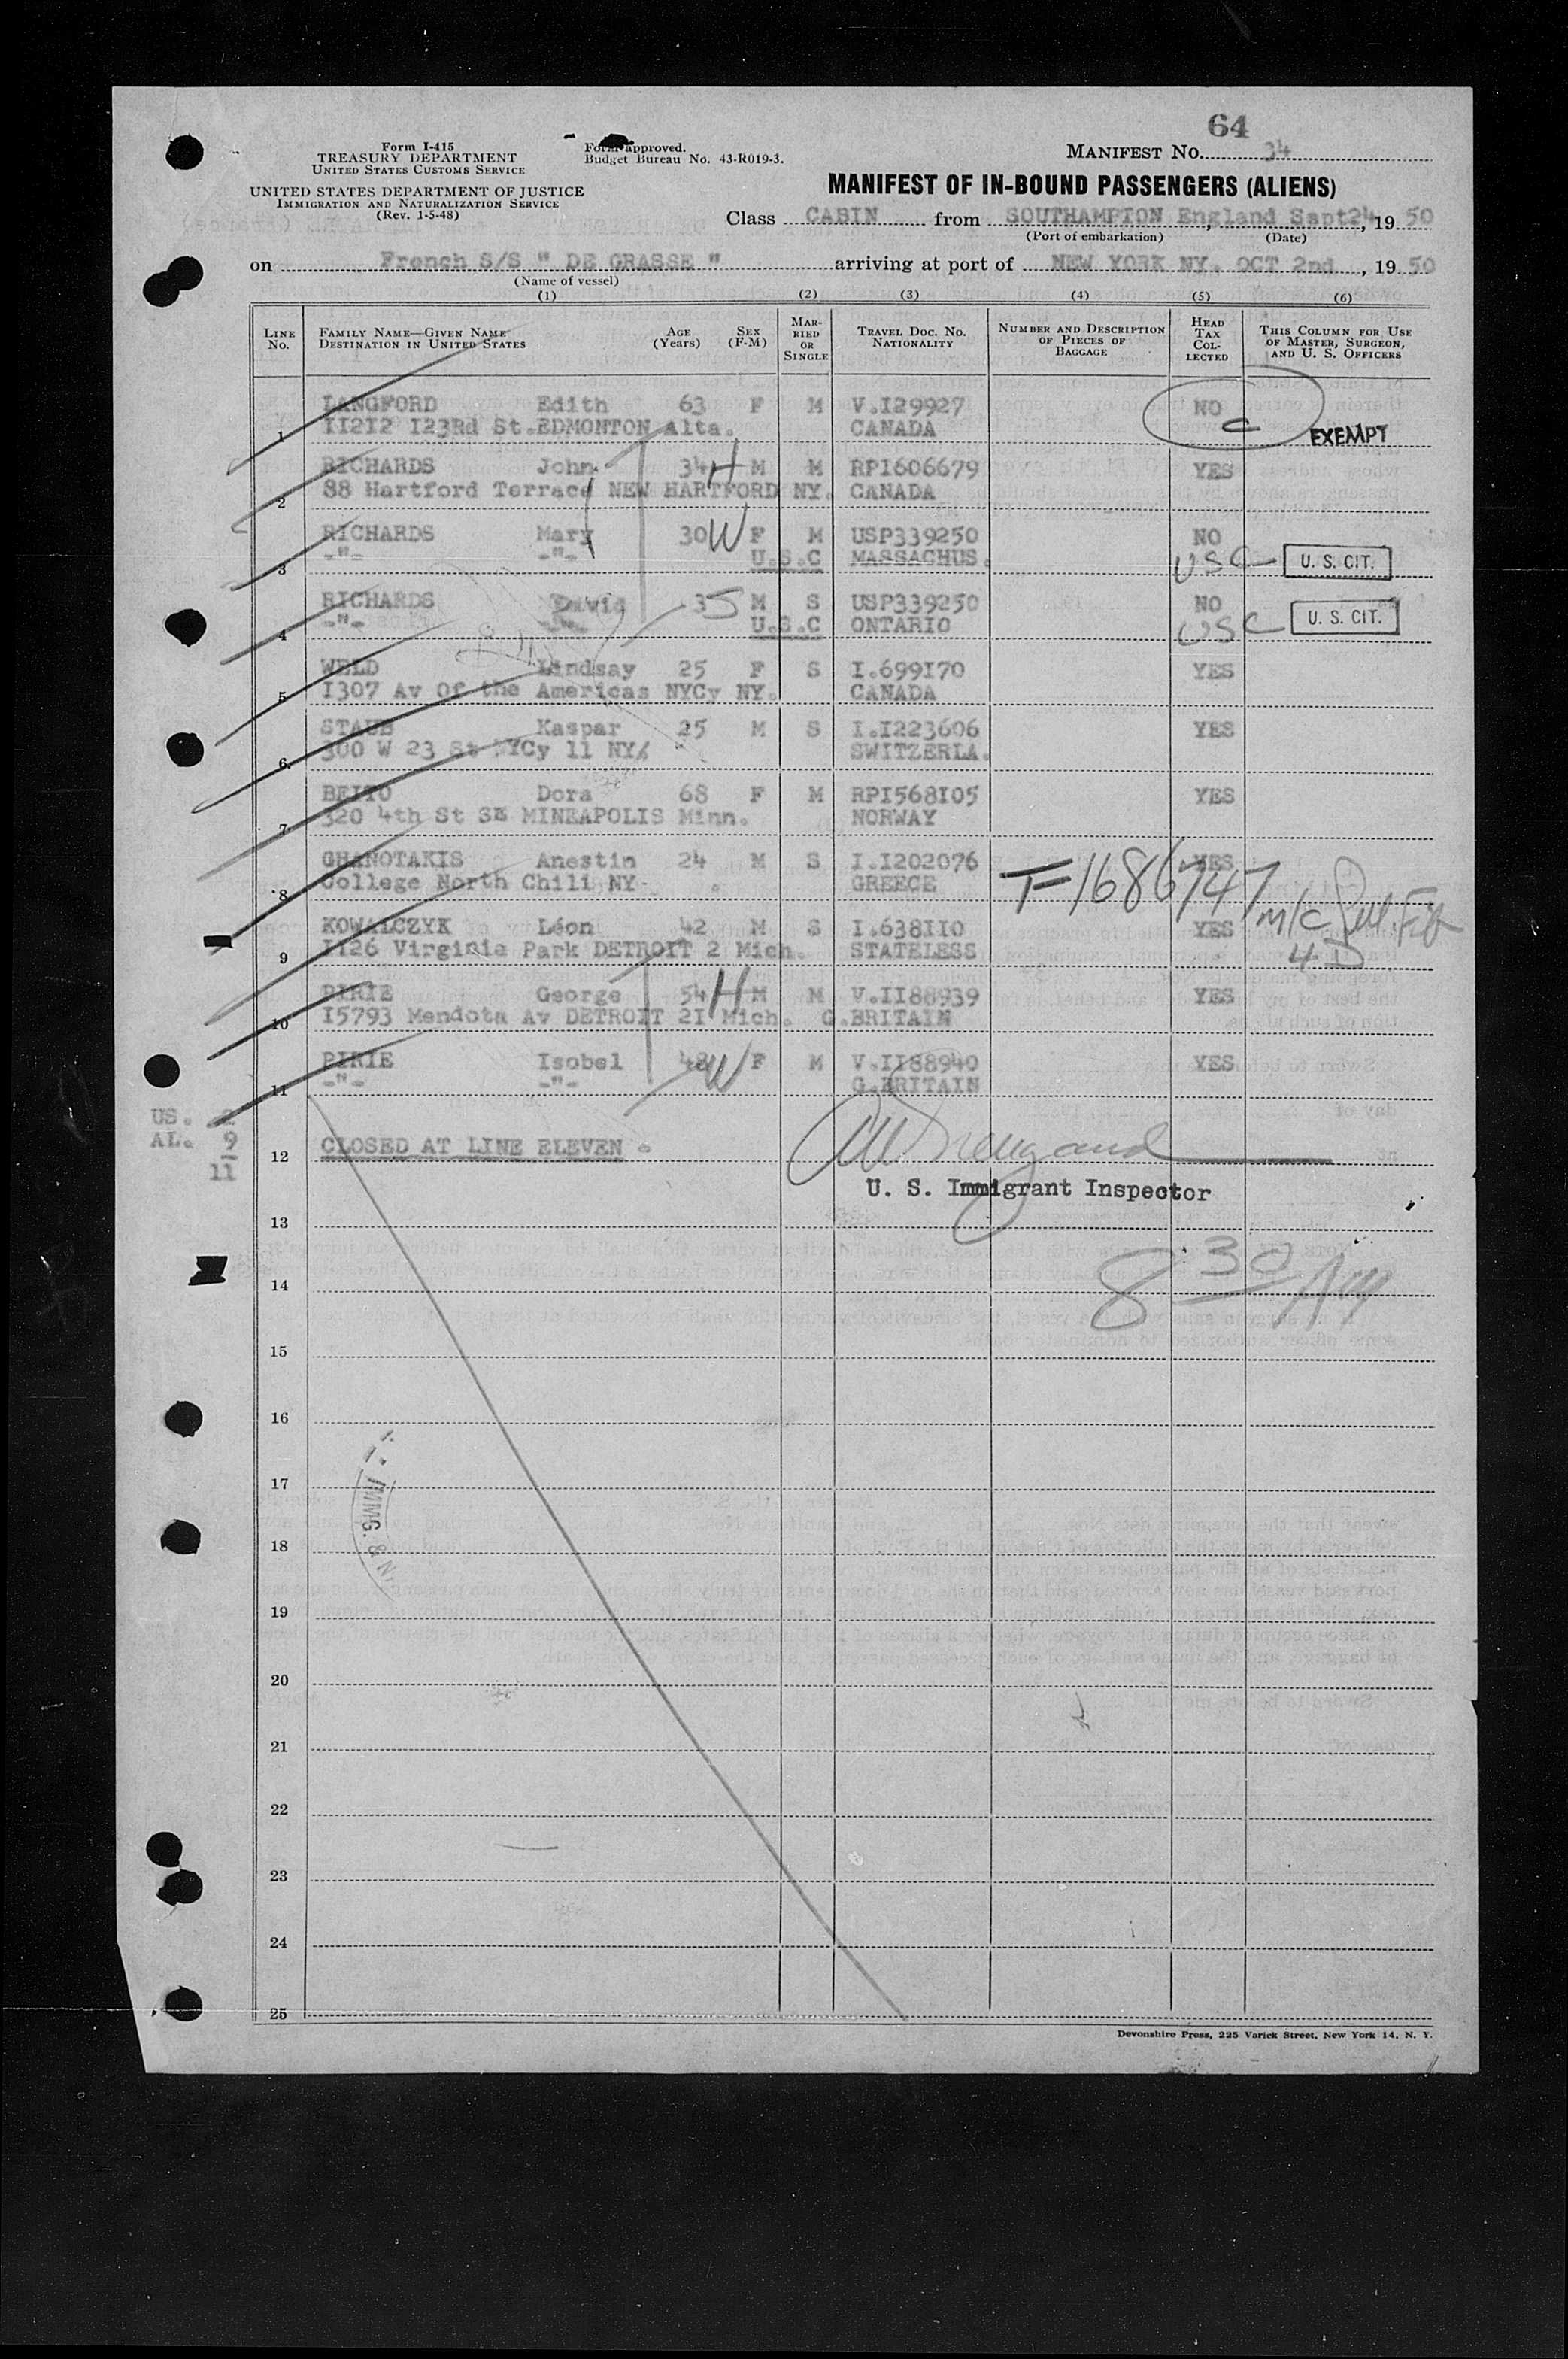 64
Form I-415
TREASURY DEPARTMENT
UNITED STATES CUSTOMS SERVICE
UNITED STATES DEPARTMENT OF JUSTICE
IMMIGRATION AND NATURALIZATION SERVICE
(Rev. 1-5-48)
Form approved.
Budget Bureau No. 43-R019-3.
MANIFEST NO. 34
MANIFEST OF IN-BOUND PASSENGERS (ALIENS)
Class CABIN from SOUTHAMPTON England Sept24, 19 50
(Port of embarkation) (Date)
on French S/S " DE GRASSE " arriving at port of NEW YORK NY. OCT 2nd, 19 50
(Name of vessel)
(1) (2) (3) (4) (5) (6)
LINE NO. FAMILY NAME—GIVEN NAME DESTINATION IN UNITED STATES AGE (YEARS) SEX (F-M) MARRIED OR SINGLE TRAVEL DOC. NO. NATIONALITY NUMBER AND DESCRIPTION OF PIECES OF BAGGAGE HEAD TAX COLLECTED THIS COLUMN FOR USE OF MASTER, SURGEON, AND U. S. OFFICERS
LANGFORD Edith 63 F M V.I29927 NO
1 II2I2 I23Rd St.EDMONTON Alta. CANADA C EXEMPT
RICHARDS John 34 H M M RPI606679 YES
2 88 Hartford Terrace NEW HARTFORD NY. CANADA
RICHARDS Mary 30 W F M USP339250 NO
3 -"- -"- U.S.C MASSACHUS. USC U. S. CIT.
RICHARDS David 3 S M S USP339250 NO
4 -"- U.S.C ONTARIO USC U. S. CIT.
WELD Lindsay 25 F S I.699I70 YES
5 I307 Av Of the Americas NYCy NY. CANADA
STAUB Kaspar 25 M S I.I223606 YES
6 300 W 23 St NYCy 11 NY SWITZERLA.
BEITO Dora 68 F M RPI568I05 YES
7 320 4th St SE MINEAPOLIS Minn. NORWAY
GHANOTAKIS Anestin 24 M S I.I202076 YES
8 College North Chili NY. GREECE T-1686747
KOWALCZYK Léon 42 M S I.638II0 YES m/c
9 II26 Virginie Park DETROIT 2 Mich. STATELESS 4 D
PIRIE George 54 H M M V.II88939 YES
10 I5793 Mendota Av DETROIT 2I Mich. G.BRITAIN
PIRIE Isobel 48 W F M V.II88940 YES
11 -"- -"- G.BRITAIN
US. 2
AL. 9
11
12 CLOSED AT LINE ELEVEN
U. S. Immigrant Inspector
13
8 30 AM
14
15
16
17
IMMG. & N
18
19
20
21
22
23
24
25
Devonshire Press, 225 Varick Street, New York 14, N. Y.